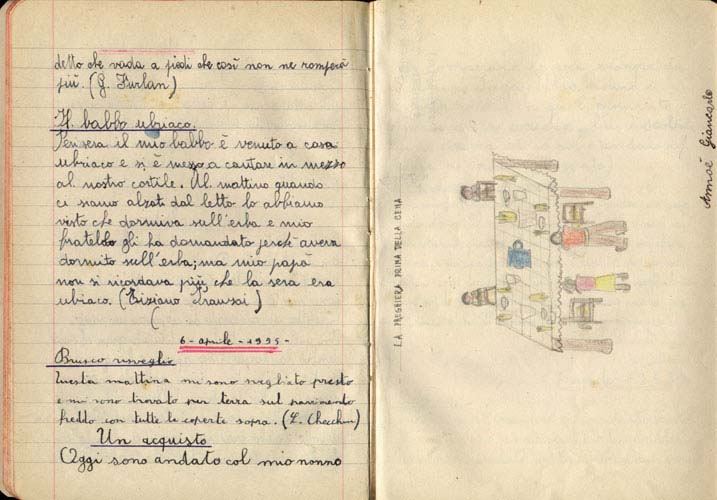 detto che vada a piedi che così non ne romperà
più. (G. Furlan)
Il babbo ubriaco.
Ieri sera il mio babbo è venuto a casa
ubriaco e si è messo a cantare in mezzo
al nostro cortile. Al mattino quando
ci siamo alzati dal letto lo abbiamo
visto che dormiva sull'erba e mio
fratello gli ha domandato perchè aveva
dormito sull'erba; ma mio papà
non si ricordava più che la sera era
ubriaco. (Tiziano
6 - aprile - 1955 -
Brusco risveglio
Questa mattina mi sono svegliato presto
e mi sono trovato per terra sul pavimento
freddo con tutte le coperte sopra. (L. Checchin)
Un acquisto
Oggi sono andato col mio nonno
LA PREGHIERA PRIMA DELLA CENA
Giancarlo